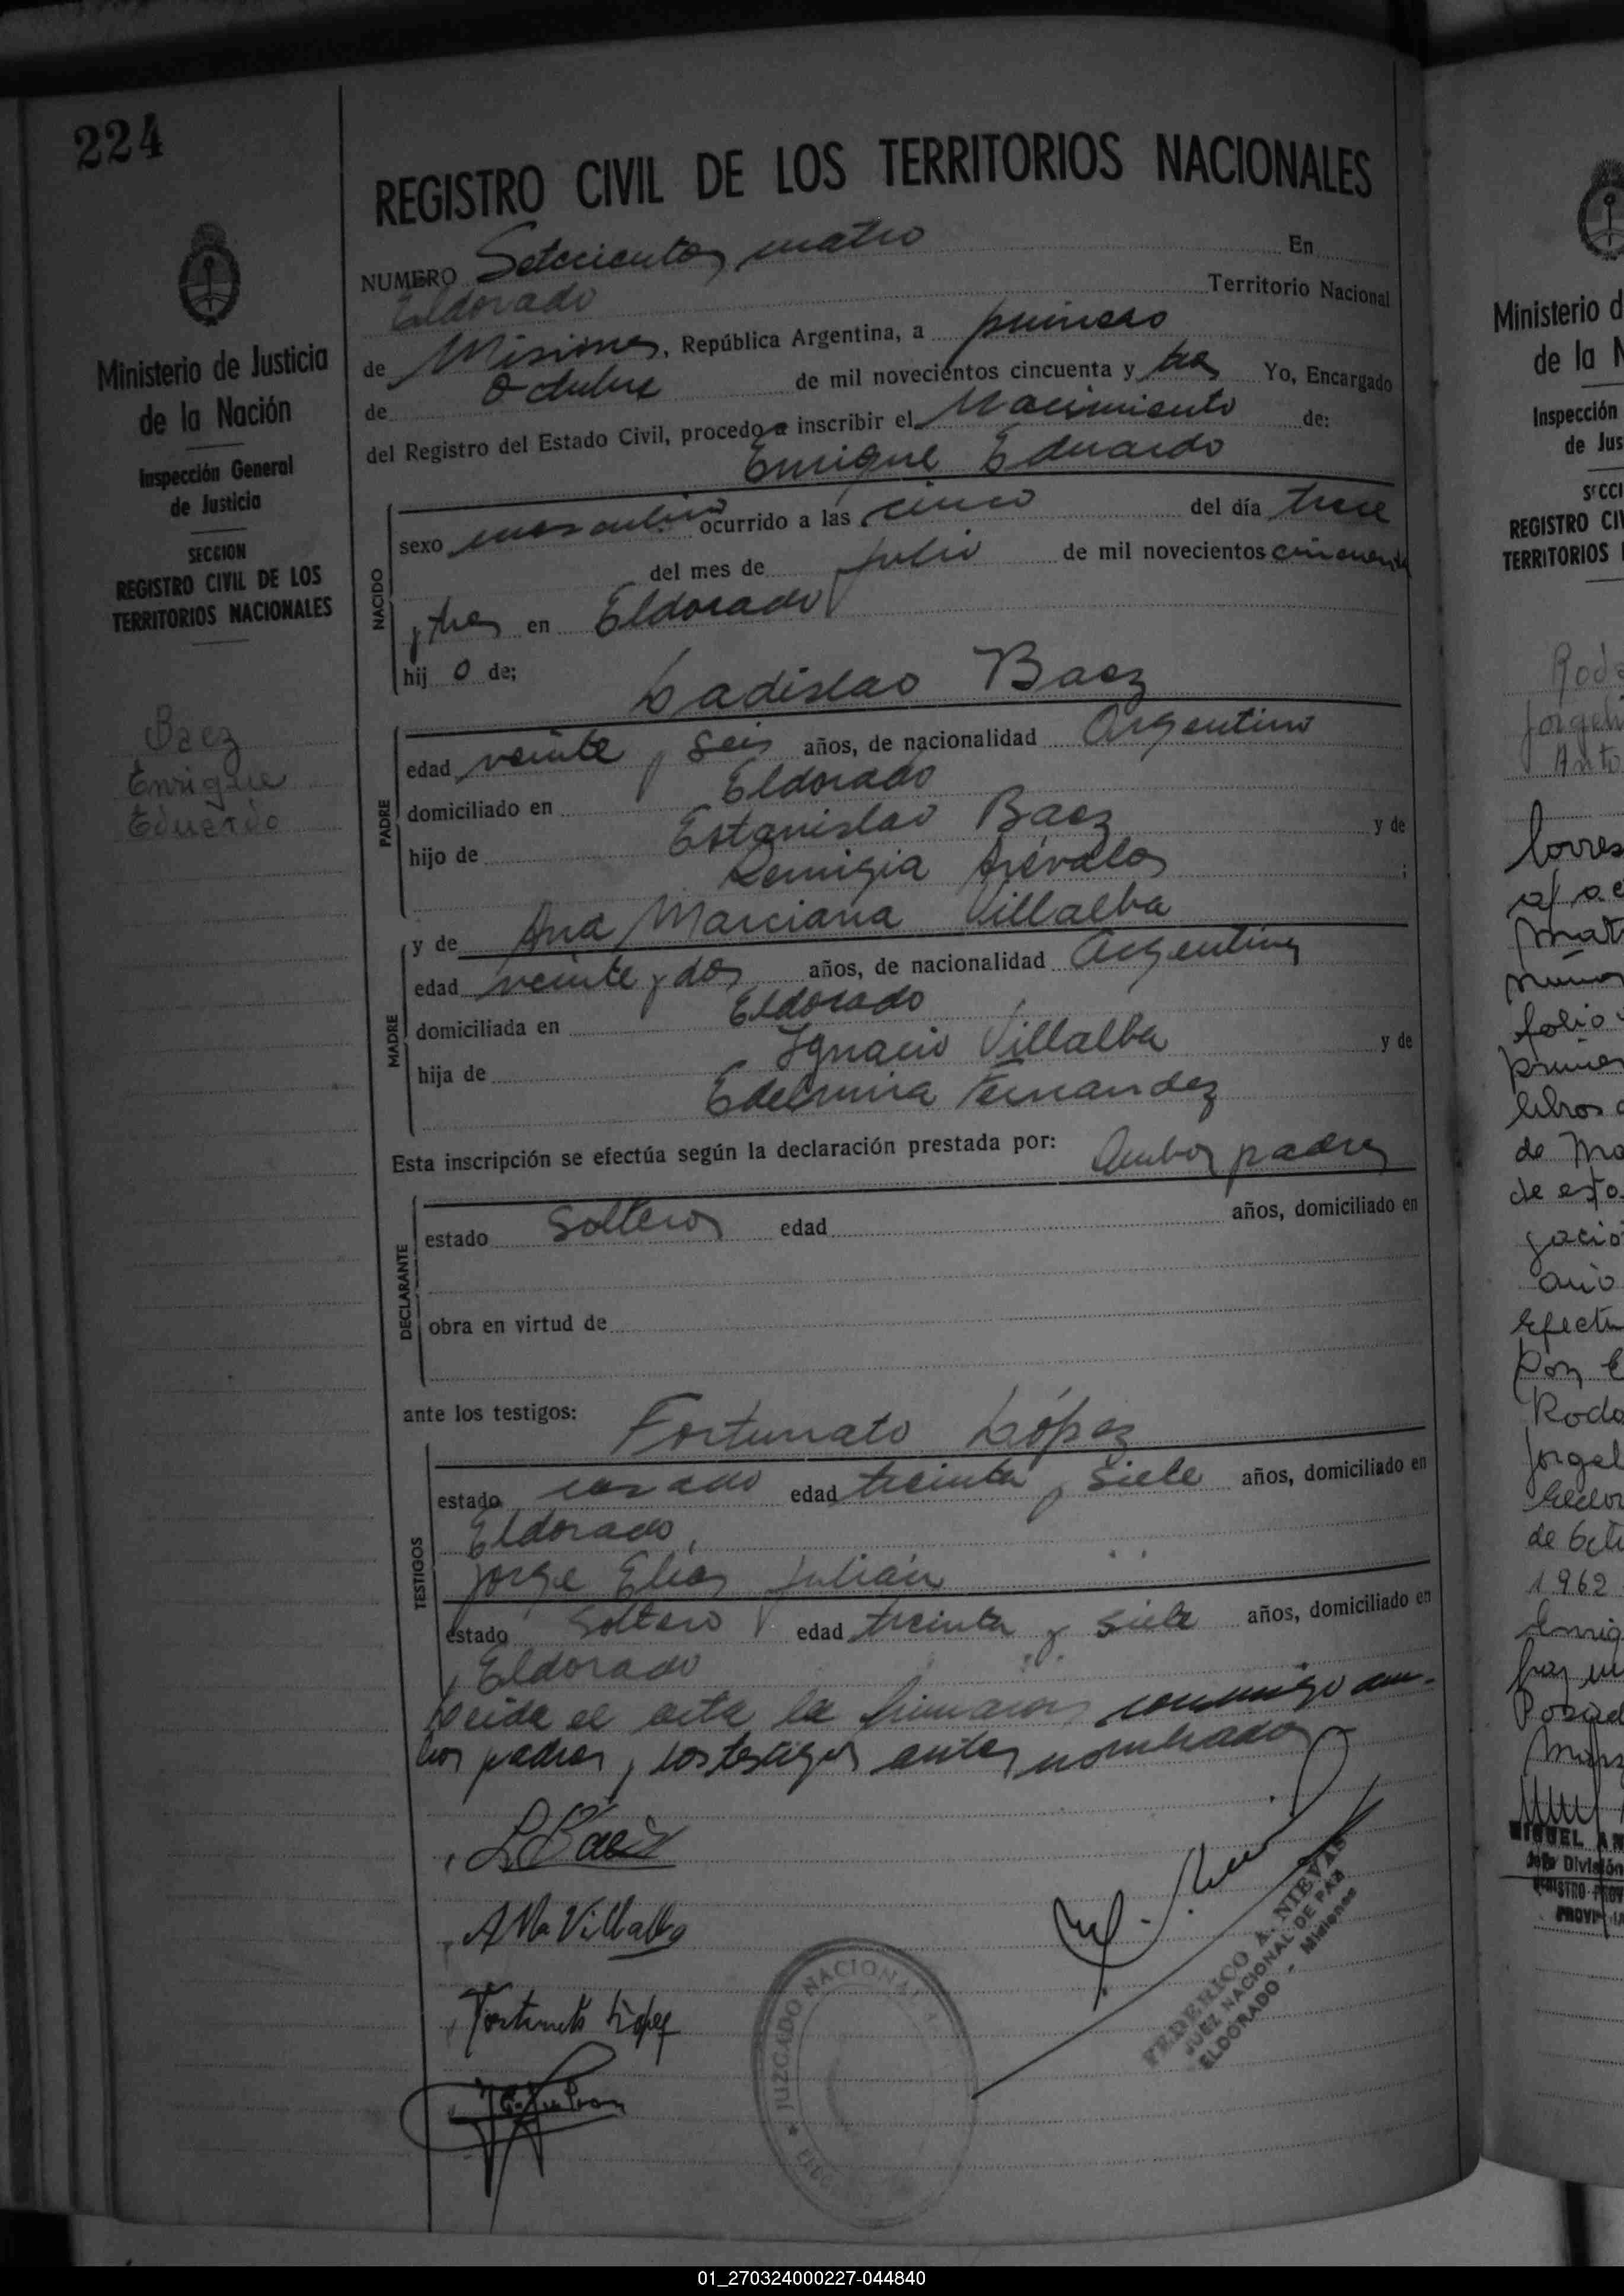 224
REGISTRO CIVIL DE LOS TERRITORIOS NACIONALES
NUMERO Setecientos cuatro En
Eldorado Territorio Nacional
de Misiones, República Argentina, a primero
de Octubre de mil novecientos cincuenta y tres Yo, Encargado
del Registro del Estado Civil, procedo a inscribir el Nacimiento de:
Enrique Eduardo
NACIDO
sexo masculino ocurrido a las cinco del día trece
del mes de julio de mil novecientos cincuenta
y tres en Eldorado
hij o de;
Ladislao Baez
PADRE
edad veinte y seis años, de nacionalidad Argentino
domiciliado en Eldorado
hijo de Estanislao Baez y de
Remigia Arévalos ;
y de Ana Marciana Villalba
MADRE
edad veinte y dos años, de nacionalidad Argentina
domiciliada en Eldorado
hija de Ignacio Villalba y de
Edelmira Fernandez
Esta inscripción se efectúa según la declaración prestada por: Ambos padres
DECLARANTE
estado Solteros edad años, domiciliado en
obra en virtud de
ante los testigos:
Fortunato López
TESTIGOS
estado casado edad treinta y siete años, domiciliado en
Eldorado,
Jorge Elias Julián
estado Soltero edad treinta y siete años, domiciliado en
Eldorado
Leida el acta la firmaron conmigo am-
bos padres y los testigos antes nombrados
L Baez
A Ma Villalba
Fortunato López
FEDERICO A. NIEVAS
JUEZ NACIONAL DE PAZ
ELDORADO - Misiones
JUZGADO NACIONAL
Ministerio de Justicia
de la Nación
Inspección General
de Justicia
SECCION
REGISTRO CIVIL DE LOS
TERRITORIOS NACIONALES
Baez
Enrique
Eduardo
Ministerio d
de la N
Inspección
de Jus
SECCI
REGISTRO CIV
TERRITORIOS
Jorgel
Anto
torres
folio
libros
de Ma
de esta
gació
año
efectu
por
Rodo
Jorgel
de Octu
1962
Posad
MIGUEL AN
Jefe División
01_270324000227-044840